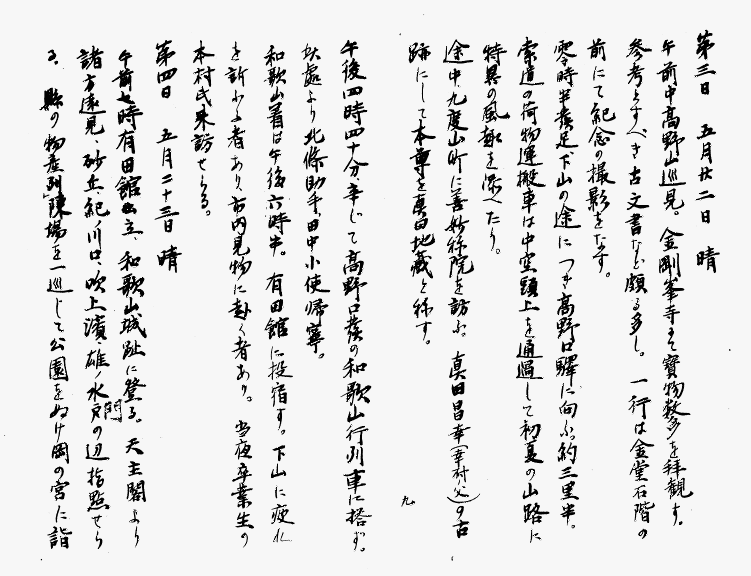 第三日　五月廿二日　晴
午前中高野山巡見。金剛峯寺にて寳物数多を拝観す。
参考とすべき古文書など頗る多し。一行は金堂石階の
前にて紀念の撮影をなす。
零時半発足下山の途につき高野口驛に向ふ。約三里半。
索道の荷物運搬車は中空頭上を通過して初夏の山路に
特異の風趣を添へたり。
途中九度山町に善妙称院を訪ふ。真田昌幸（幸村父）の古
跡にして本尊を真田地蔵と称す。
九
午後四時四十分辛じて高野口発の和歌山行列車に搭ず。
此處より北條助手、田中小使帰寧。
和歌山著は午後六時半。有田館に投宿す。下山に疲れ
を訴ふる者あり、市内見物に赴く者あり。当夜卒業生の
本村氏来訪せらる。
第四日　五月二十三日　晴
午前七時有田館出立、和歌山城趾に登る。天主閣より
諸方遠見、砂丘、紀ノ川口、吹上濱、雄ノ水門の辺指点せら
る。縣の物産陳列場を一巡して公園をぬけ岡の宮に詣